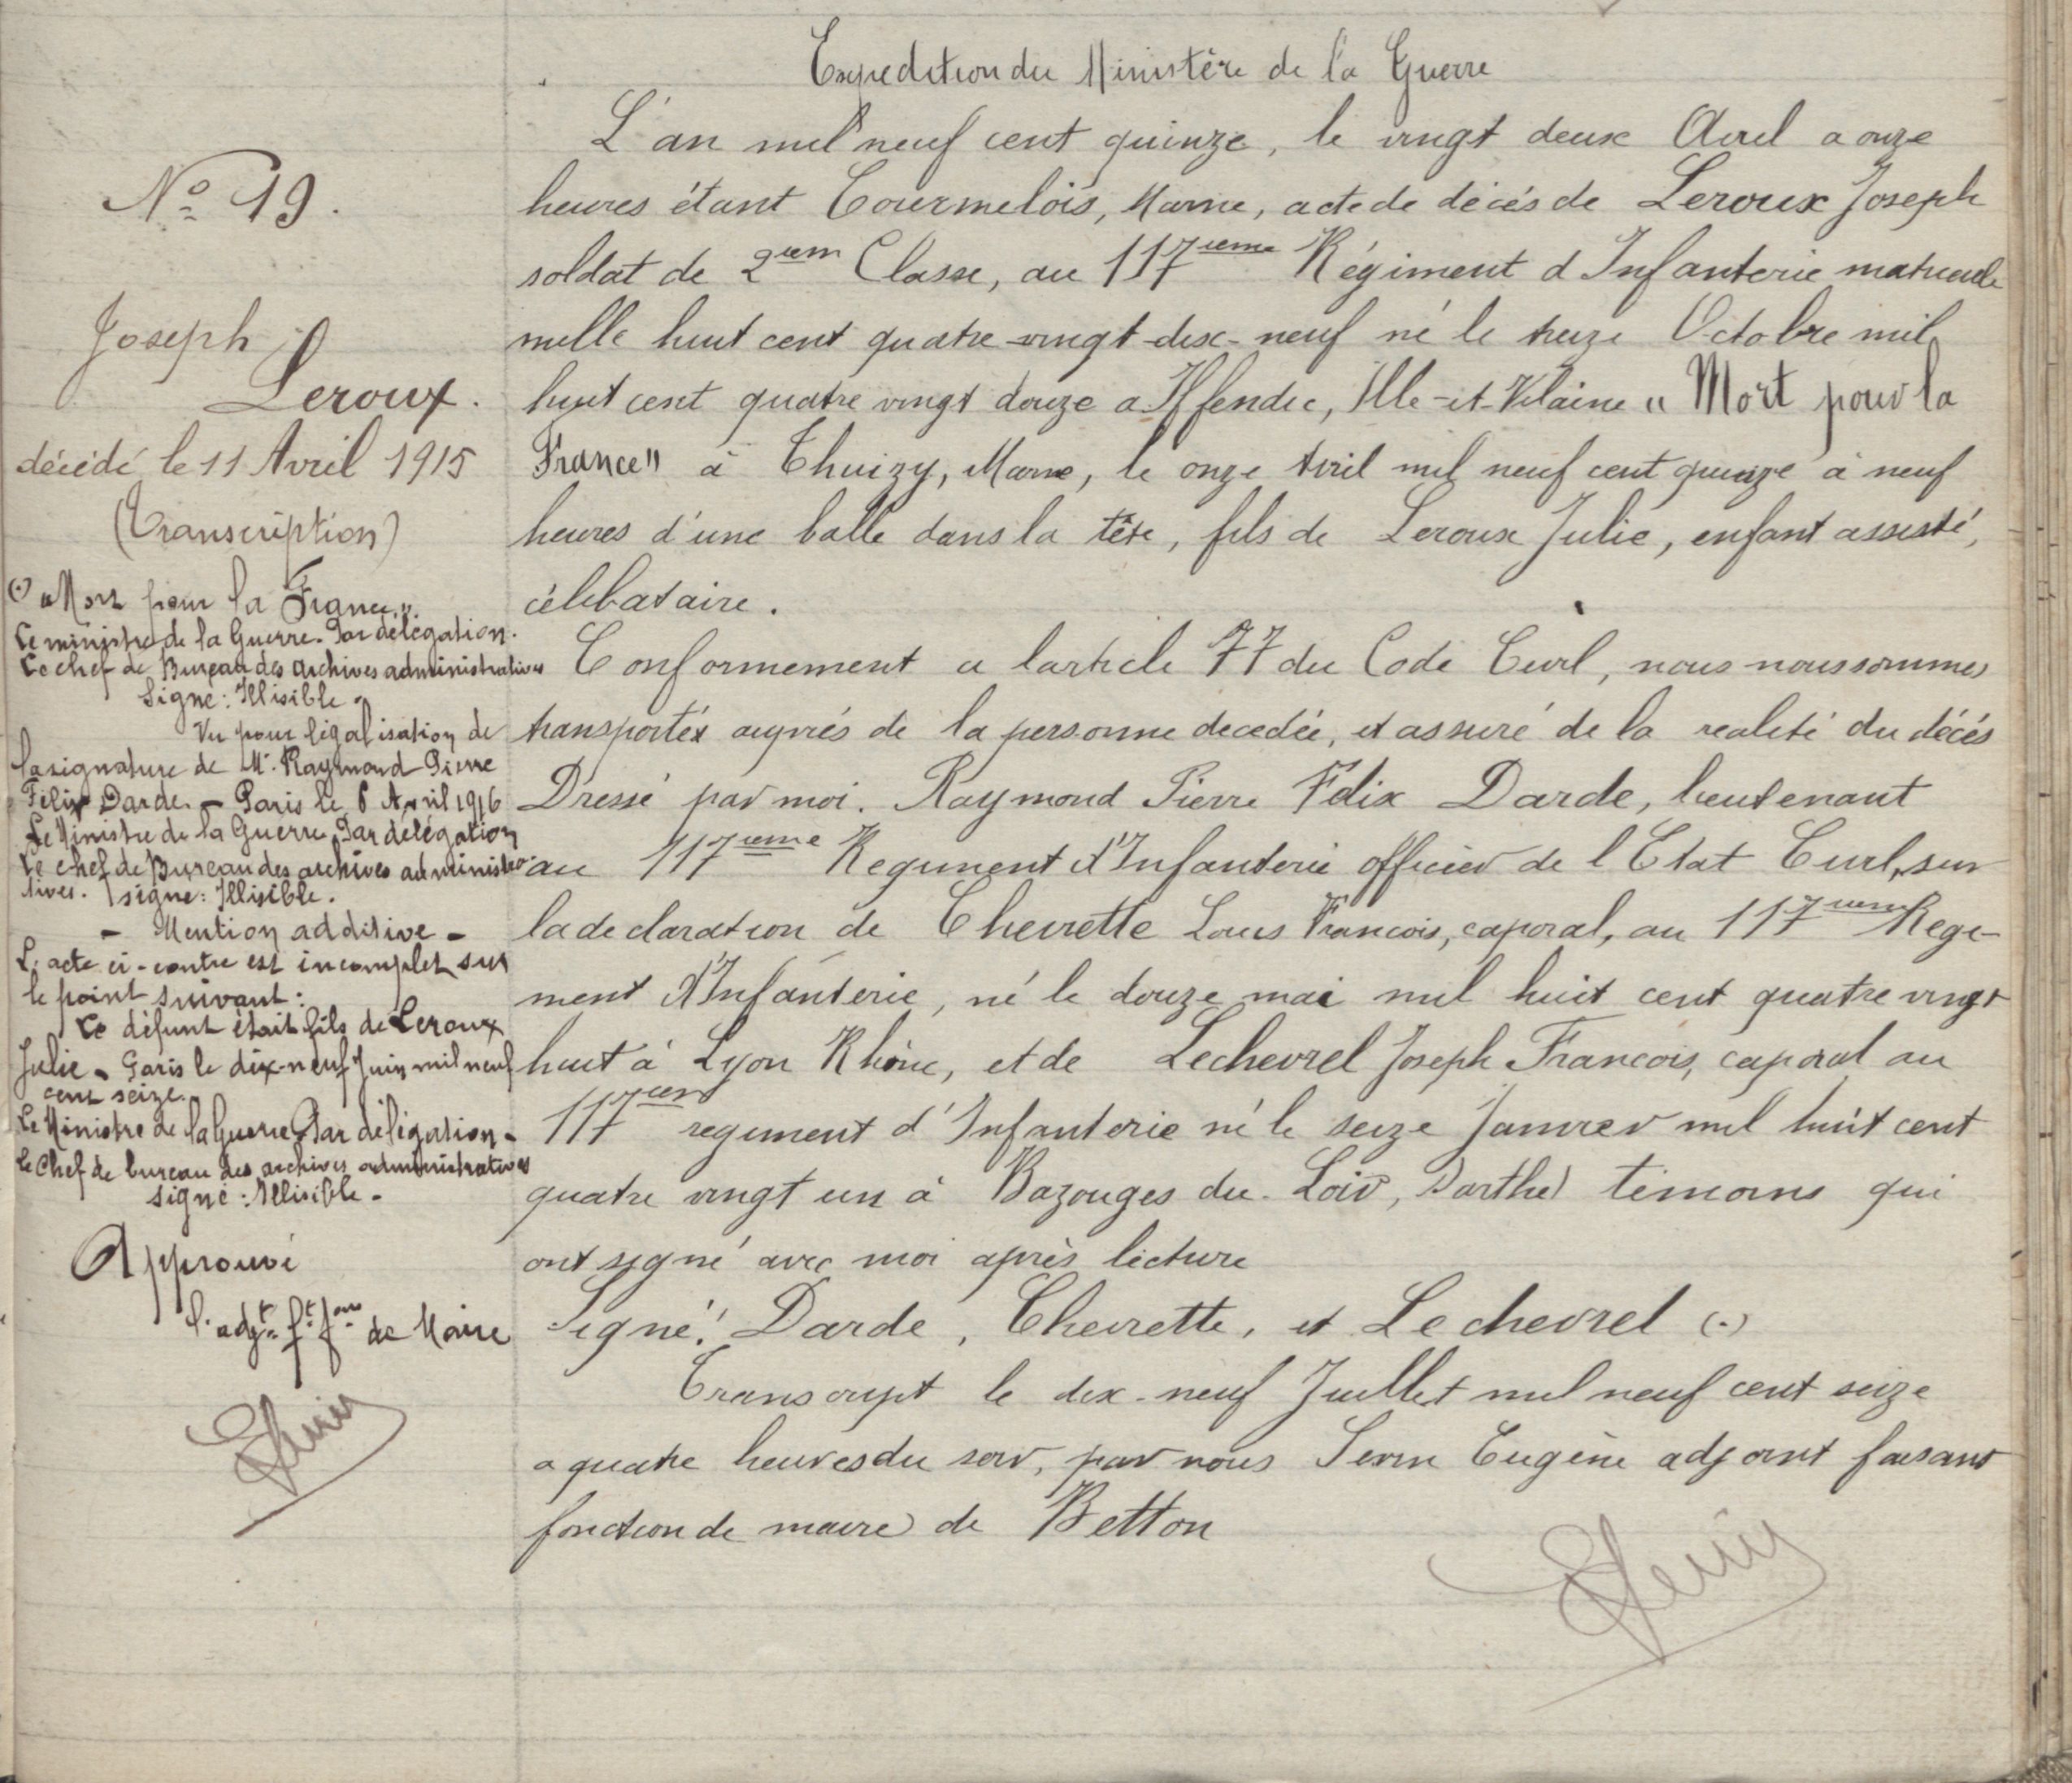 Expedition du Ministère de la Guerre
L'an mil neuf cent quinze, le vingt deux Avril a onze
heures étant Courmelois, Marne, acte de décés de Leroux Joseph
soldat de 2iem Classe, au 117ieme Régiment d Infanterie matricule
mille huit cent quatre-vingt-dix-neuf né le treize Octobre mil
huit cent quatre vingt douze a Iffendic, Ille-et-Vilaine "Mort pour la
France" à Thuizy, Marne, le onze Avril mil neuf cent quinze à neuf
heures d'une balle dans la tête, fils de Leroux Julie, enfant assisté,
célibataire.
Conformement a larticle 77 du Code Civil, nous nous sommes
transportés auprés de la personne decedée, et assuré de la realité du décés
Dressé par moi. Raymond Pierre Felix Darde, lieutenant
au 117ieme Regiment d'Infanterie officier de l Etat Civil, sur
la declaration de Chevrette Louis Francois, caporal, au 117ieme Regi-
ment d'Infanterie, né le douze mai mil huit cent quatre vingt
huit à Lyon Rhône, et de Lechevrel Joseph Francois, caporal au
117iem regiment d'Infanterie né le seize Janvier mil huit cent
quatre vingt un à Bazouges du Loir, Sarthe) témoins qui
ont signé avec moi après lecture
Signé: Darde, Chevrette, et Lechevrel (.)
Transcript le dix-neuf Juillet mil neuf cent seize
a quatre heures du soir, par nous Serin Eugène adjoint faisant
fonction de maire de Betton
No 19.
Joseph
Leroux.
décédé le 11 Avril 1915
(Transcription)
(.) "Mort pour la France".
Le ministre de la Guerre. Par délégation.
Le chef de Bureau des archives administratives
Signé: Illisible.
Vu pour légalisation de
la signature de Mr. Raymond Pierre
Félix Darde. - Paris le 6 Avril 1916
Le Ministre de la Guerre Par délégation
Le chef de Bureau des archives administra-
tives. signé: Illisible.
- Mention additive -
L'acte ci-contre est incomplet sur
le point suivant:
Le défunt était fils de Leroux
Julie - Paris le dix-neuf Juin mil neuf
cent seize.
Le Ministre de la Guerre Par délégation -
le Chef de bureau des archives administratives
signé: Illisible -
Approuvé
l'adjt ft fon de Maire